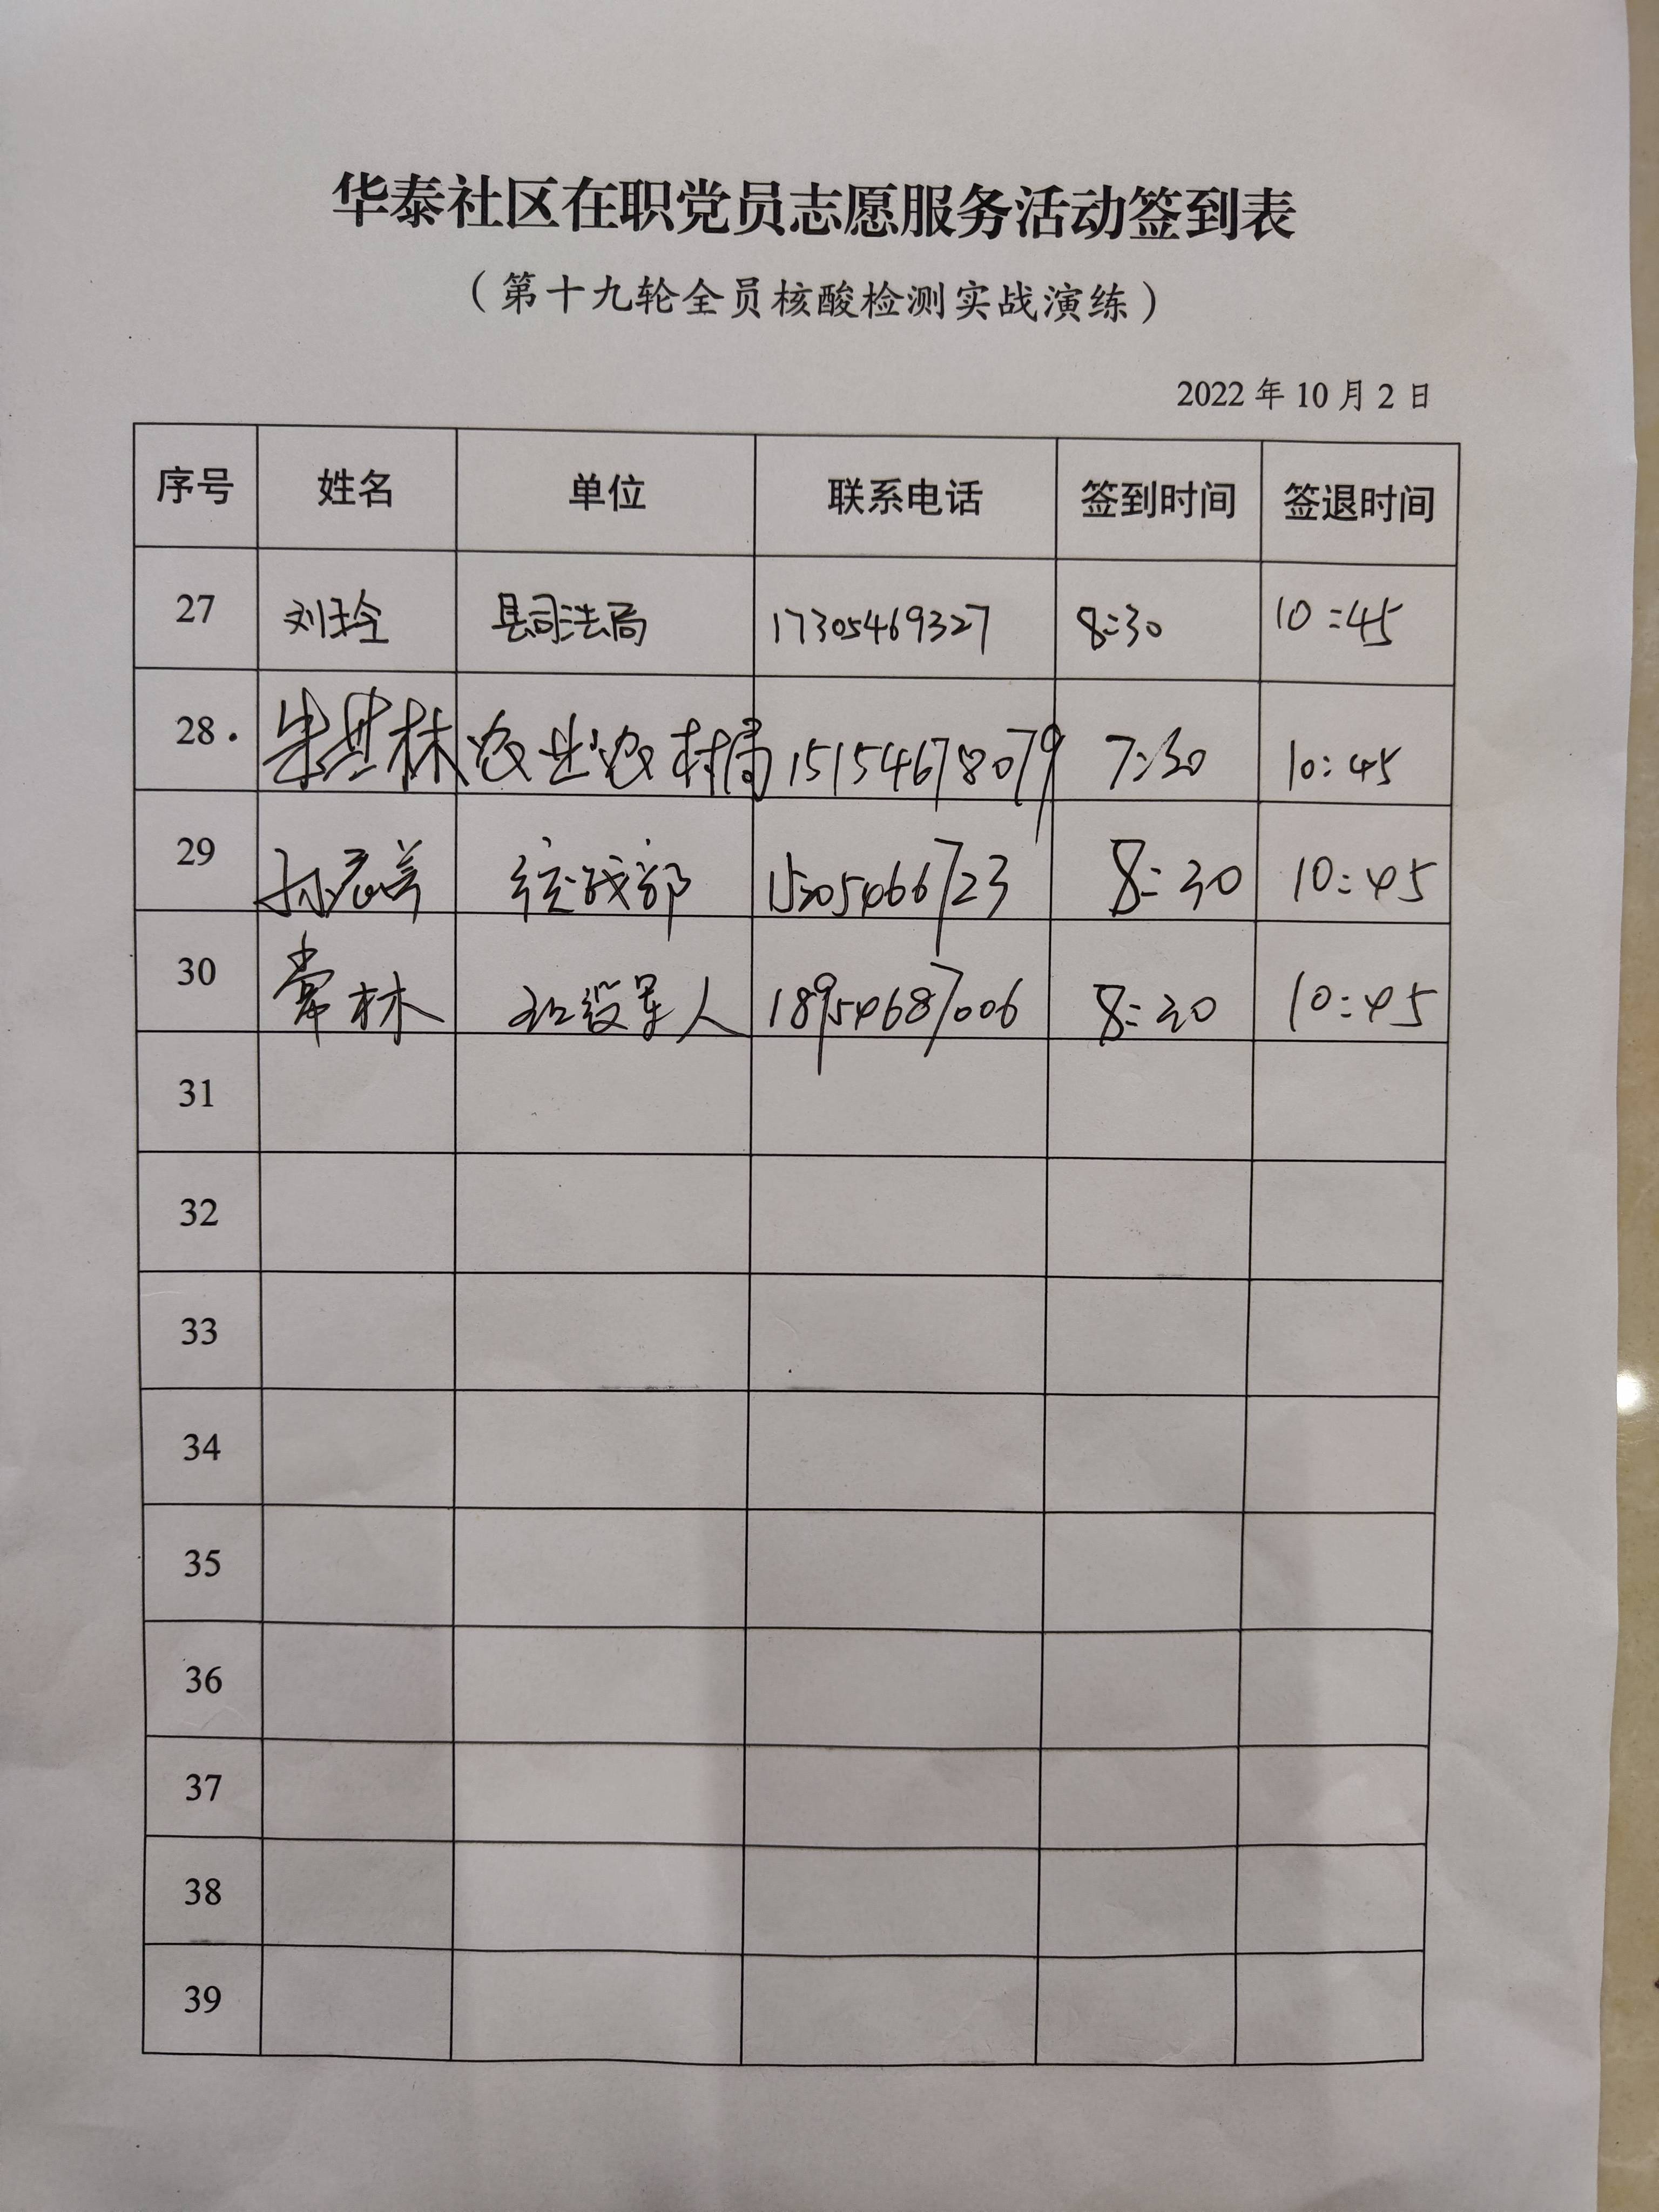 华泰社区在职党员志愿服务活动签到表
（第十九轮全员核酸检测实战演练）
2022 年 10 月 2 日
序号 姓名 单位 联系电话 签到时间 签退时间
27 刘玲 县司法局 17305469327 8:30 10:45
28. 朱其林 农业农村局 15154678079 7:30 10:45
29 统战部 15205466723 8:30 10:45
30 常林 退役军人 18954687006 8:30 10:45
31
32
33
34
35
36
37
38
39